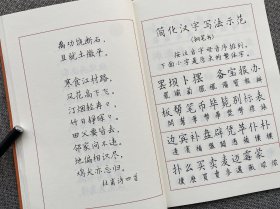 且就土微平。
寒食江村路，
风花高下飞。
汀烟轻冉冉，
竹日静晖晖。
田父要皆去，
邻家问不违。
地偏相识尽，
鸡犬亦忘归。
杜甫诗四首
简化汉字写法示范
(钢笔书)
按汉语字母音序排列。
下面小字是原来的繁体字。
罢坝卜摆 备宝报办
罷壩蔔擺 備寶報辦
板帮笔币毕毙别标表
闆幫筆幣畢斃彆標錶
边宾补盘辟凭苹仆朴
邊賓補盤闢憑蘋僕樸
扑么买卖麦迈霉蒙
撲麼買賣麥邁黴